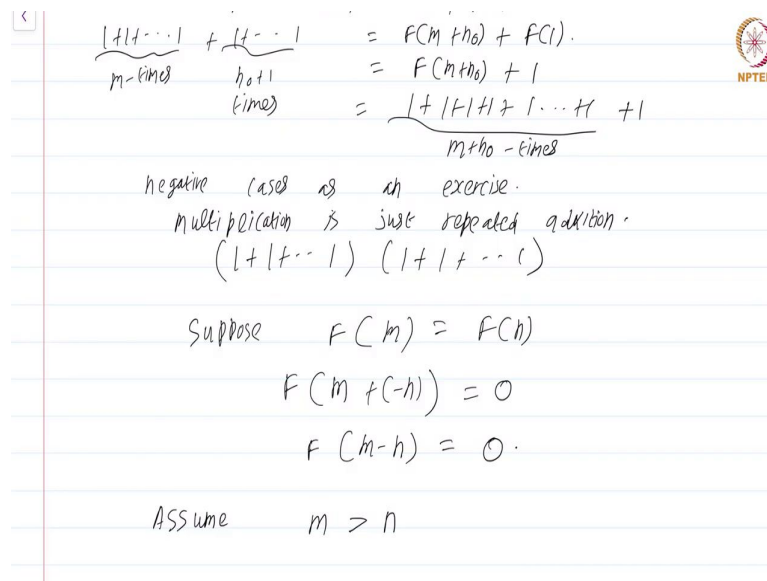 1+1+...1 + 1+...1 = F(m+n0) + F(1).
m-times n0+1 times
= F(m+n0) + 1
= 1+1+1+1+1...+1 +1
m+n0-times
negative cases as an exercise.
multiplication is just repeated addition.
(1+1+...1) (1+1+...1)
Suppose F(m) = F(n)
F(m+(-n)) = 0
F(m-n) = 0.
Assume m > n
NPTEL